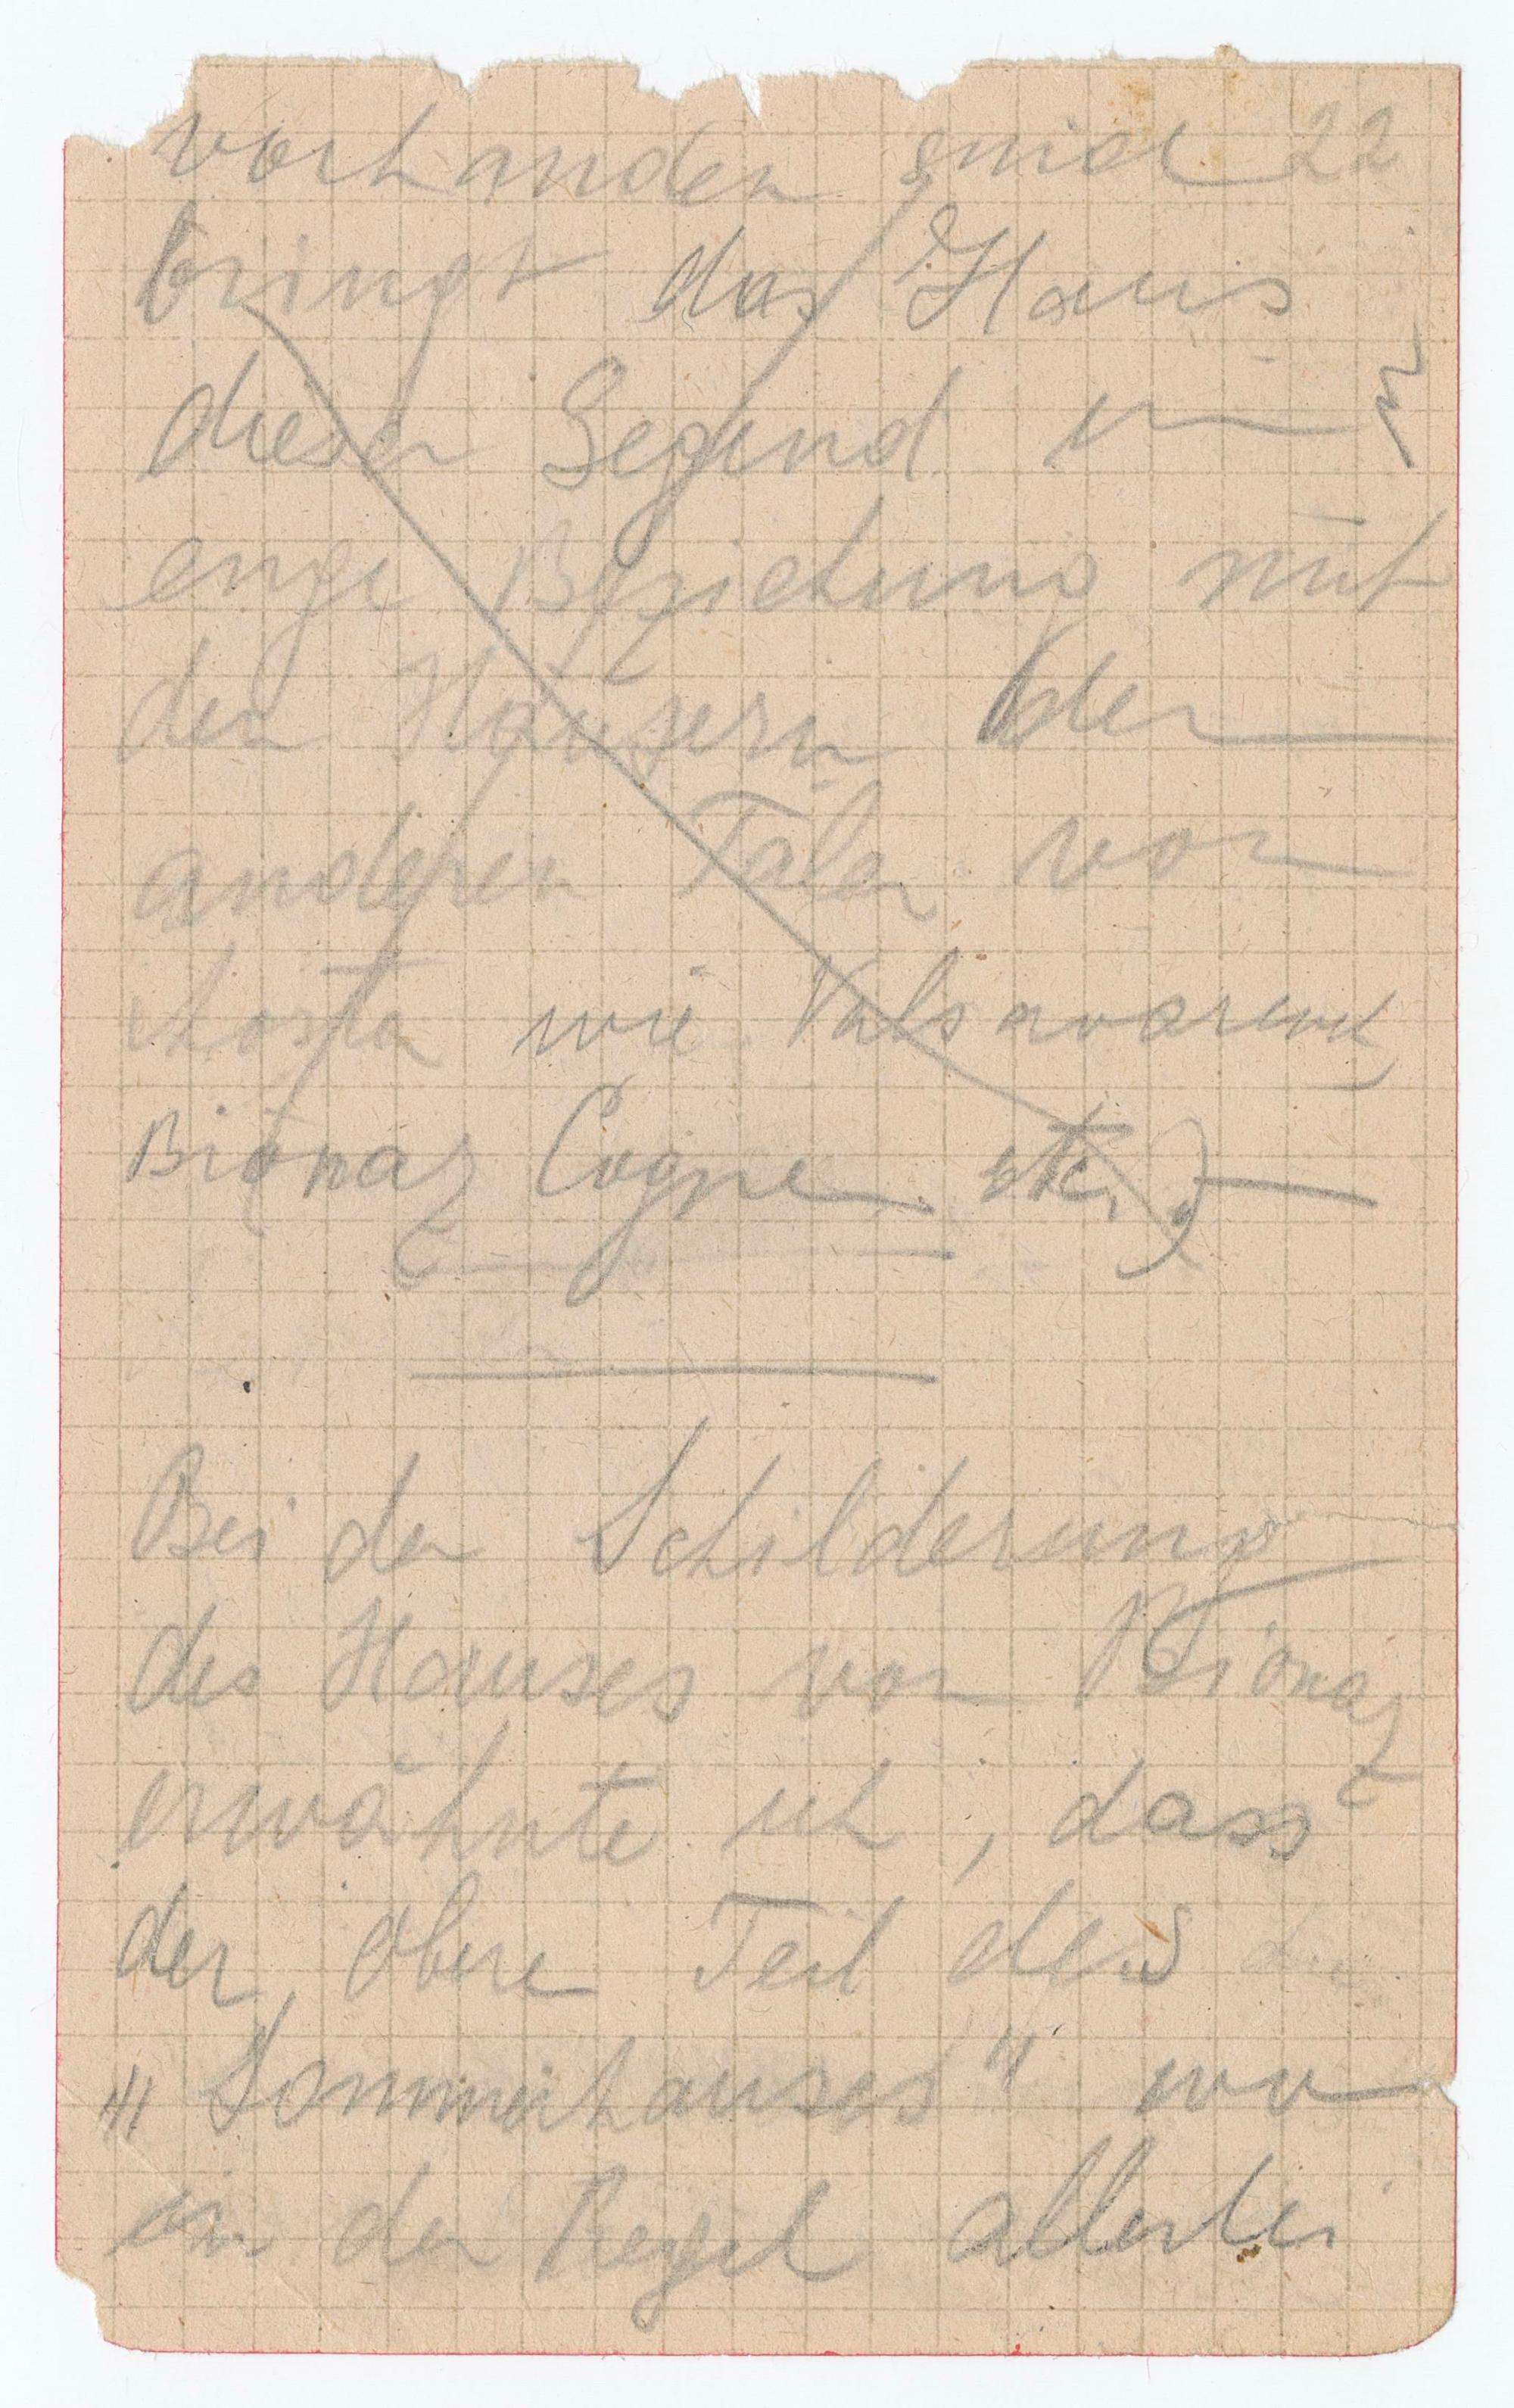 vorhanden sind 22
bringt das Haus
dieser Gegend in
enge Beziehung mit
den Häusern der
anderen Täler von
Aosta wie Valsavaranche
Bionaz Cogne etc.
Bei der Schilderung
des Hauses von Bionaz
erwähnte ich, dass
der obere Teil des
"Sommerhauses" wo
in der Regel allerlei